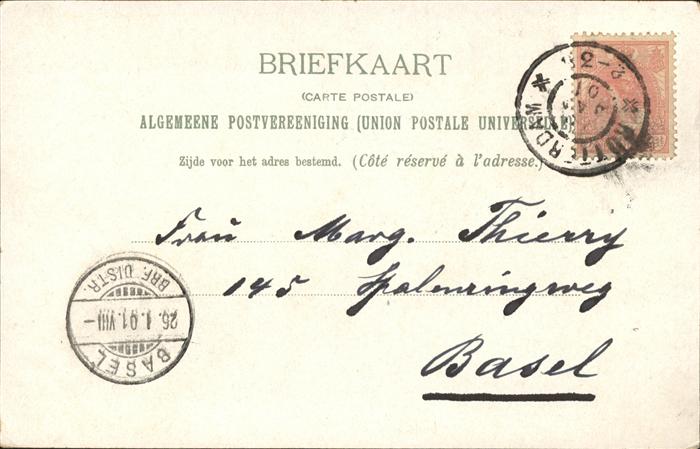 BRIEFKAART
(CARTE POSTALE)
ALGEMEENE POSTVEREENIGING (UNION POSTALE UNIVERSELLE)
Zijde voor het adres bestemd. (Côté réservé à l'adresse.)
ROTTERDAM
Frau Marg. Thierry
145 Spalenringweg
Basel
BASEL
26.1.01.VIII–
BRF. DISTR.